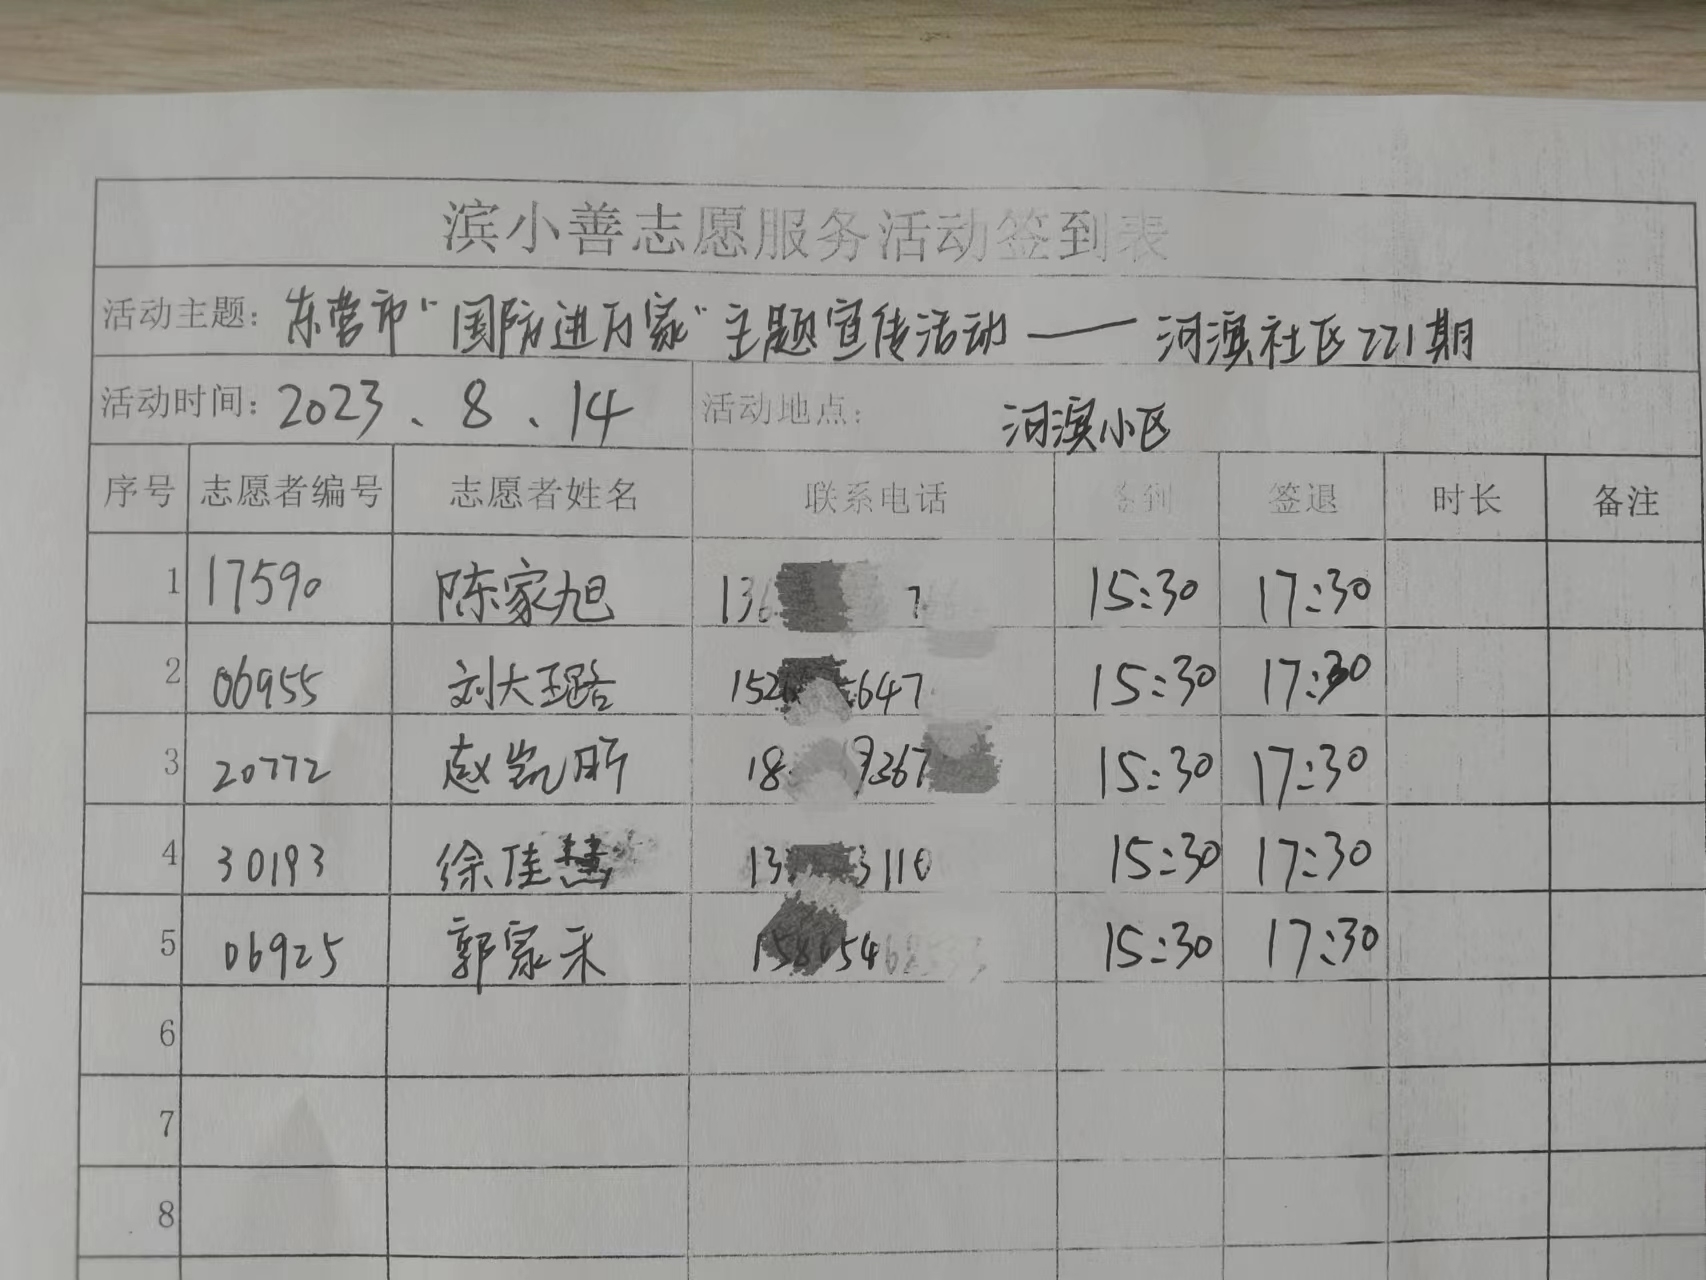 滨小善志愿服务活动签到表
活动主题：东营市“国防进万家”主题宣传活动——河滨社区221期
活动时间：2023、8、14 活动地点：河滨小区
序号 志愿者编号 志愿者姓名 联系电话 签到 签退 时长 备注
1 17590 陈家旭 136 7 15:30 17:30
2 06955 刘大璐 152 647 15:30 17:30
3 20772 赵凯昕 18 9367 15:30 17:30
4 30193 徐佳慧 13 3110 15:30 17:30
5 06925 郭家禾 15:30 17:30
6
7
8